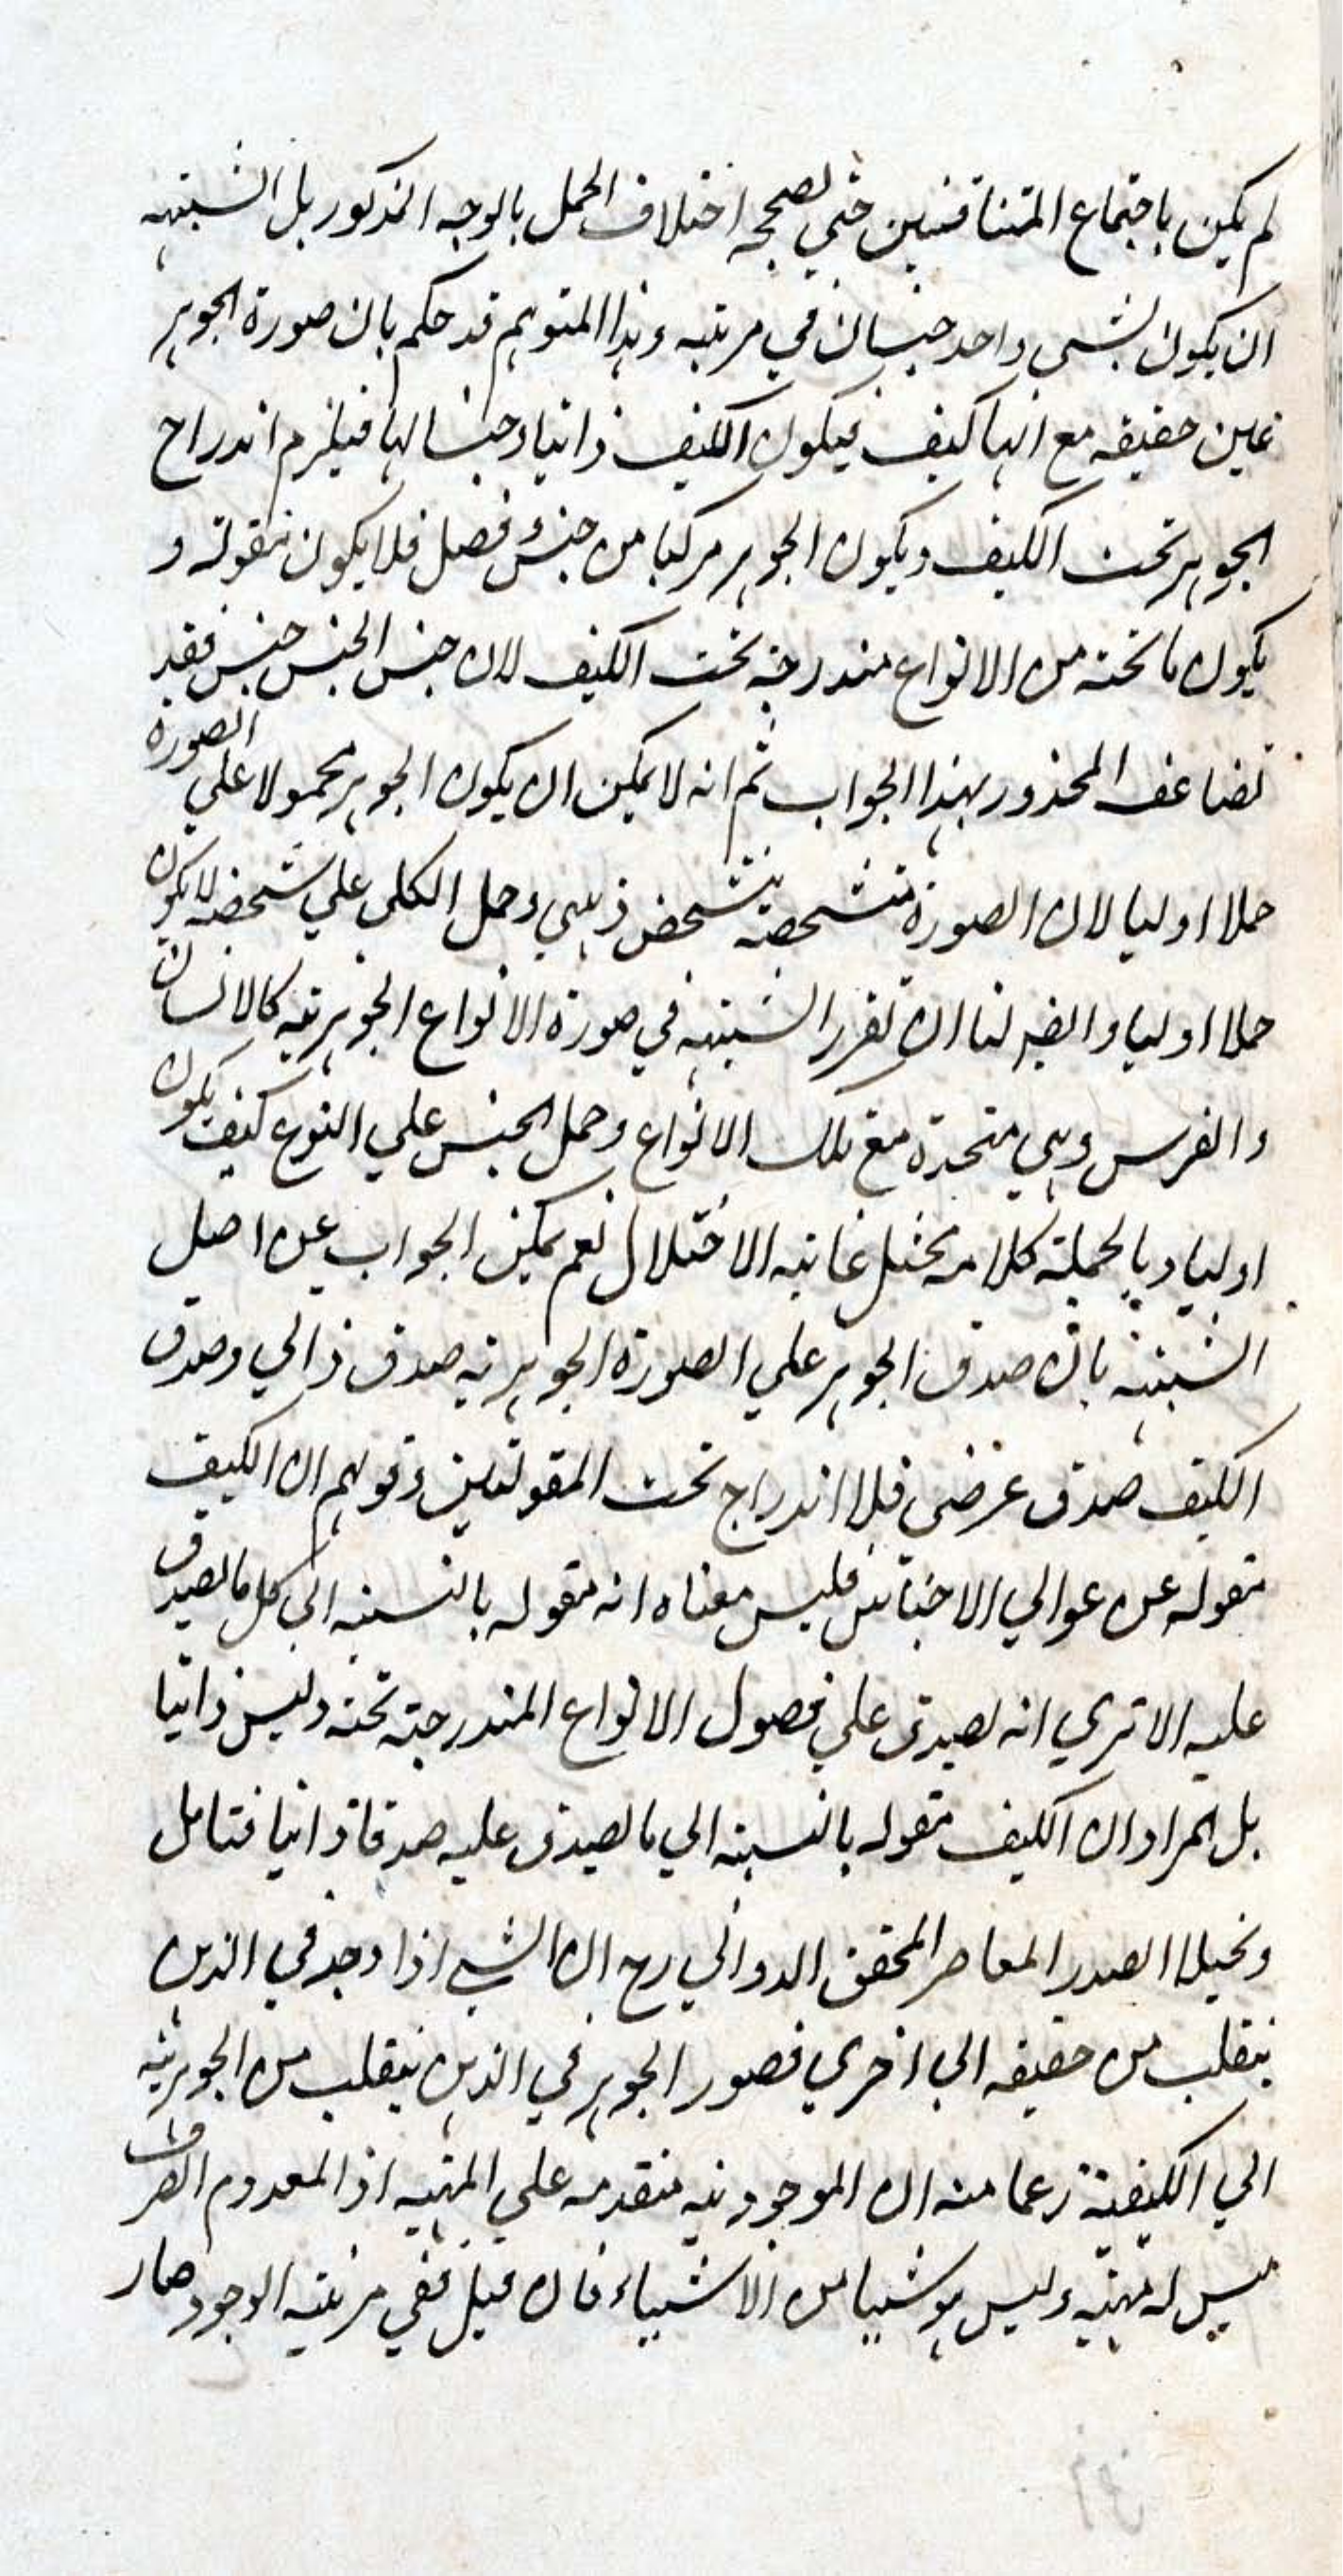 لم يكن باجتماع المتنافيين حتى يصححه اختلاف الحمل بالوجه المذكور بل الشبهة
ان يكون لشى واحد جنسان في مرتبه وهذا المتوهم قد حكم بان صورة الجوهر
عين حقيقه مع انها كيف فيكون الكيف ذاتيا وجنسا لها فيلزم اندراج
الجوهر تحت الكيف ويكون الجوهر مركبا من جنس وفصل فلا يكون مقولة و
يكون ما تحته من الانواع مندرجة تحت الكيف لان جنس الجنس جنس فقد
تضاعف المحذور بهذا الجواب ثم انه لا يمكن ان يكون الجوهر محمولا على الصورة
حملا اوليا لان الصورة متشخصة بتشخص ذهني وحمل الكلى علي شخصه لا يكون
حملا اوليا وايضا لنا ان نقرر الشبهة في صورة الانواع الجوهرية كالانسان
والفرس وهي متحدة مع تلك الانواع وحمل الجنس علي النوع كيف يكون
اوليا وبالجملة كلامه مختل غاية الاختلال نعم يمكن الجواب عن اصل
الشبهة بان صدق الجوهر علي الصورة الجوهرية صدق ذاتي وصدق
الكيف صدق عرضي فلا اندراج تحت المقولتين وقولهم ان الكيف
مقوله عن عوالي الاجناس فليس معناه انه مقوله بالنسبة الي كل ما يصدق
عليه الا تري انه يصدق علي فصول الانواع المندرجة تحته وليس ذاتيا
بل المراد ان الكيف مقوله بالنسبة الي ما يصدق عليه صدقا ذاتيا فتامل
وتخيل الصدر المعاصر المحقق الدواني رح ان الشي اذا وجد في الذهن
ينقلب من حقيقه الي اخري فصور الجوهر في الذهن ينقلب من الجوهرية
الي الكيفية زعما منه ان الموجودية متقدمه علي المهية اذ المعدوم الصرف
ليس له مهية وليس هو شيئا من الاشياء فان قيل ففي مرتبة الوجود صار